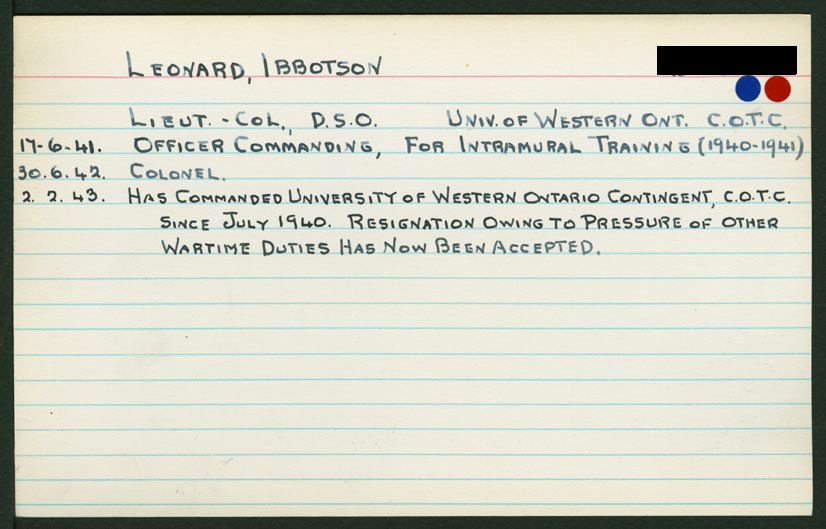 LEONARD, IBBOTSON
LIEUT.-COL., D.S.O. UNIV. OF WESTERN ONT. C.O.T.C.
17-6-41. OFFICER COMMANDING, FOR INTRAMURAL TRAINING (1940-1941)
30.6.42. COLONEL.
2. 2. 43. HAS COMMANDED UNIVERSITY OF WESTERN ONTARIO CONTINGENT, C.O.T.C.
SINCE JULY 1940. RESIGNATION OWING TO PRESSURE OF OTHER
WARTIME DUTIES HAS NOW BEEN ACCEPTED.